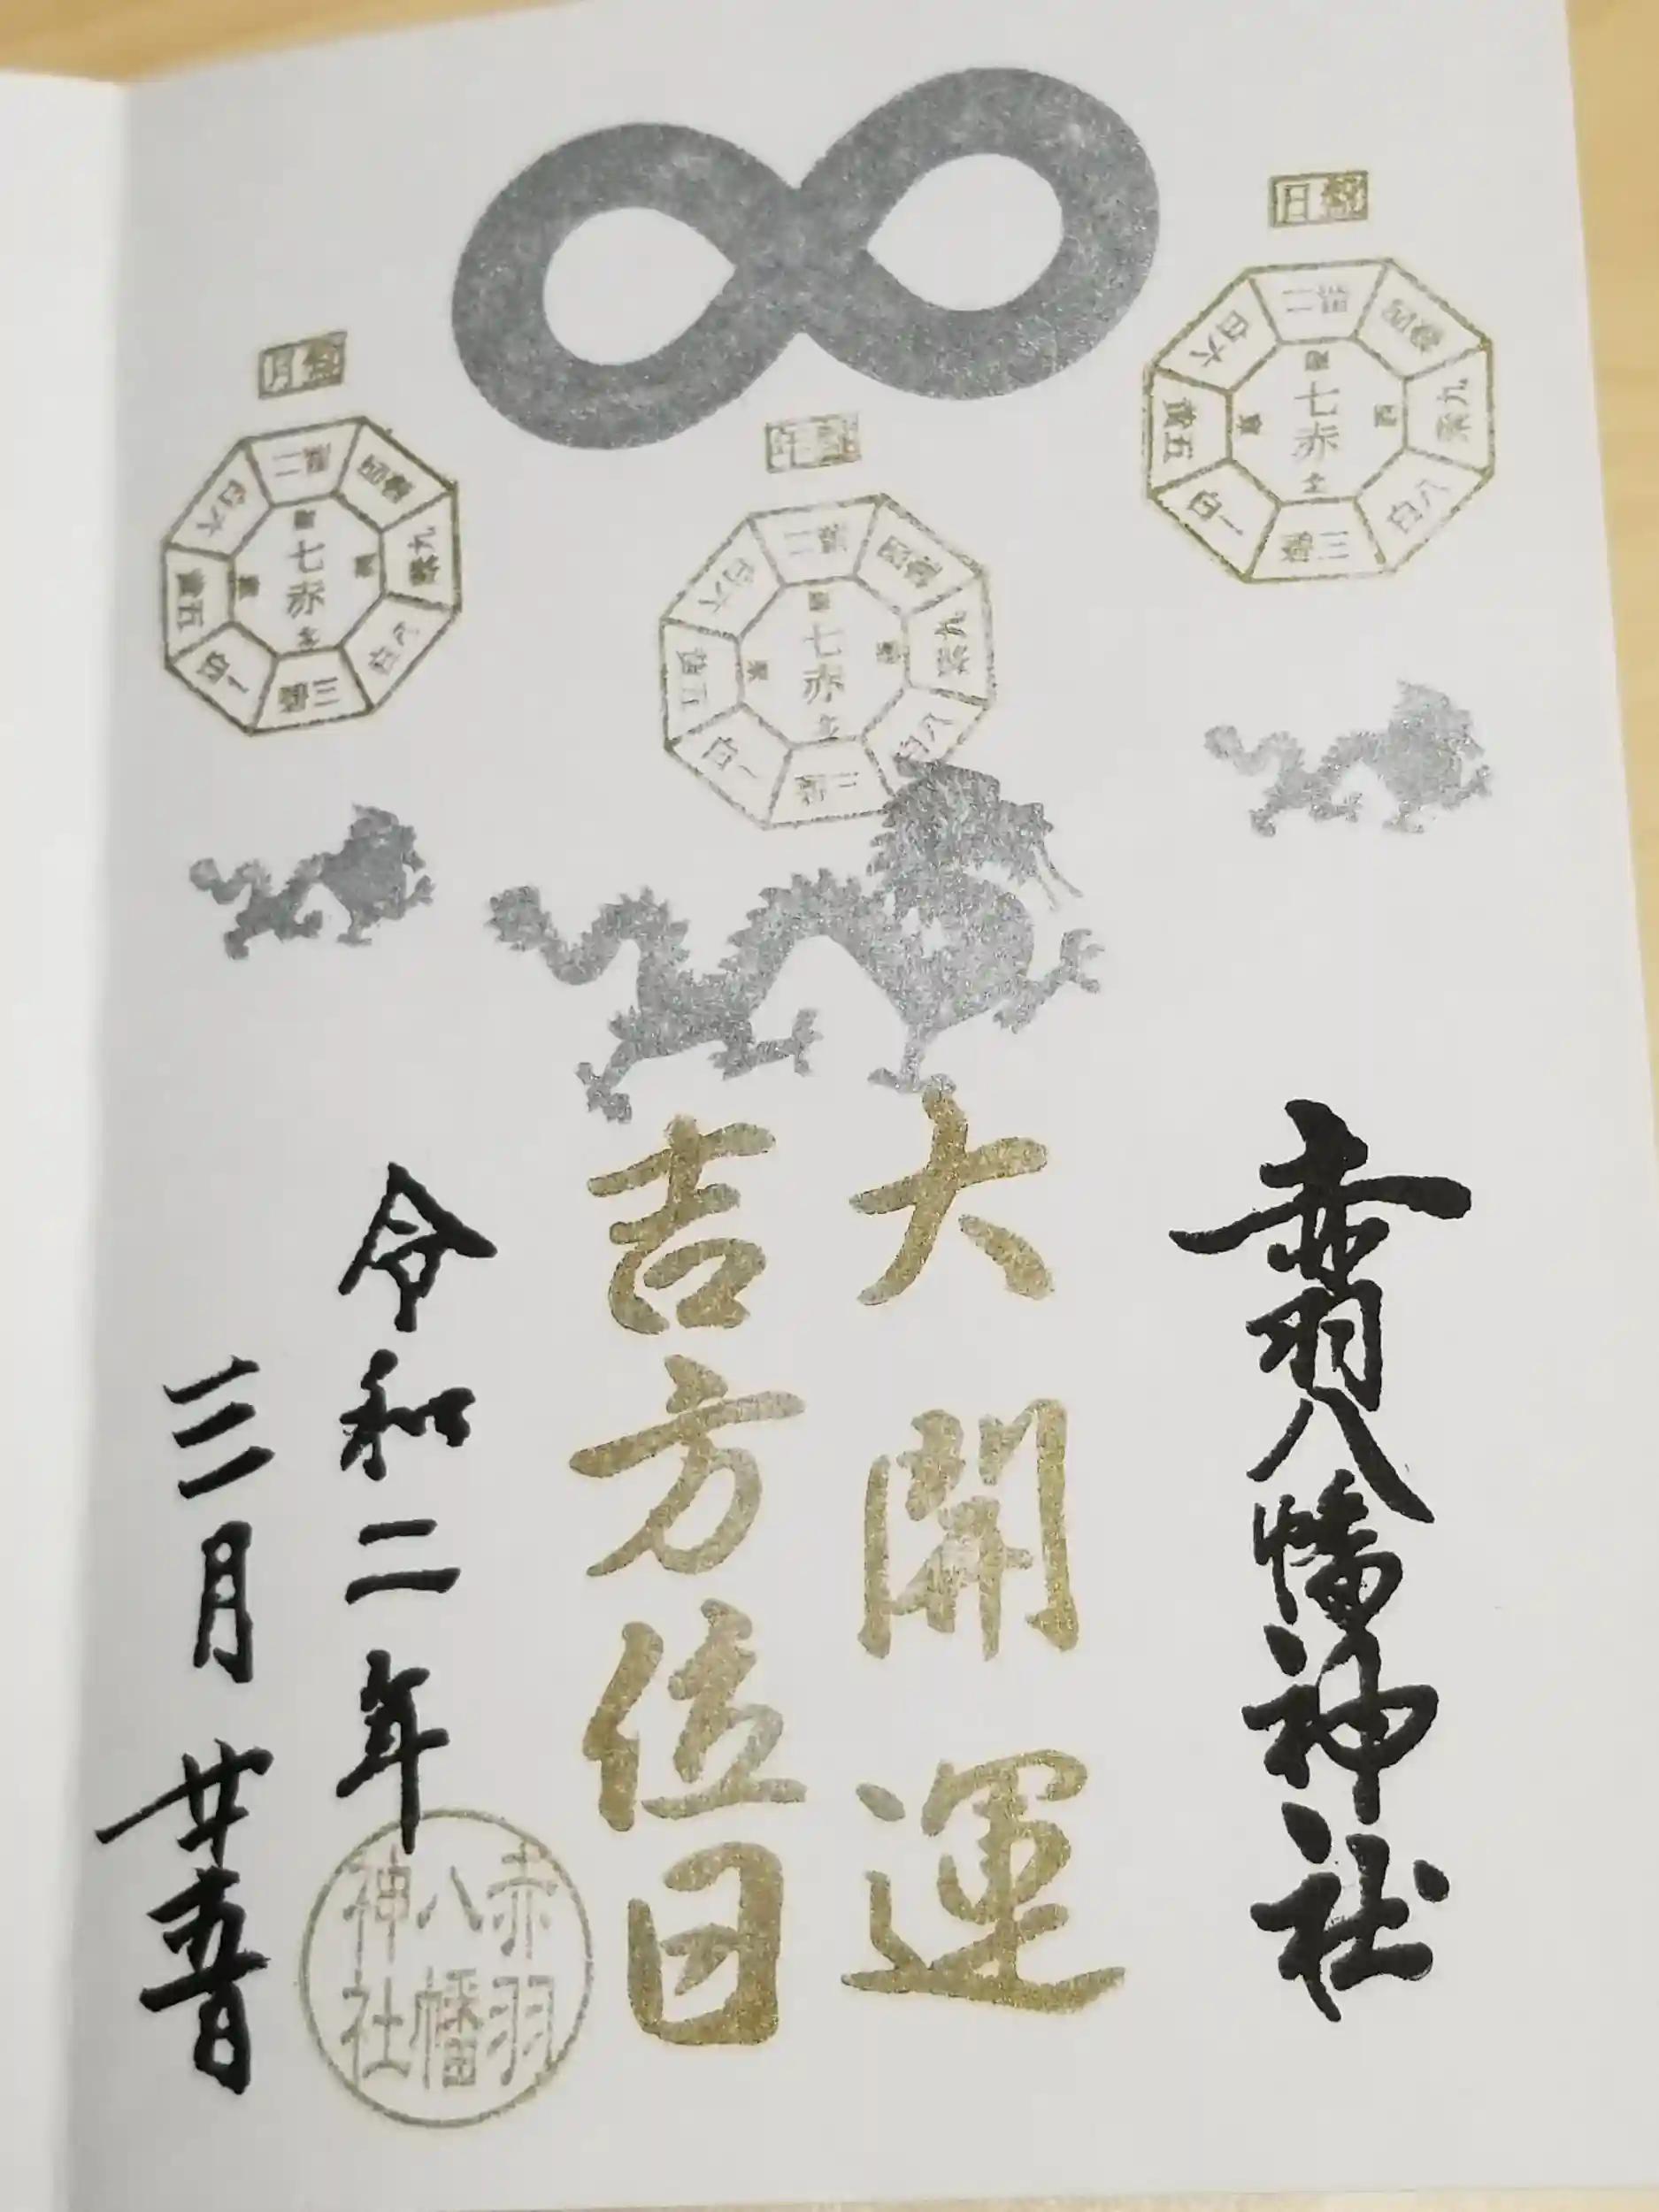 日盤
七赤
二黒
四緑
九紫
八白
三碧
一白
五黄
六白
年盤
七赤
二黒
四緑
九紫
八白
三碧
一白
五黄
六白
月盤
七赤
二黒
四緑
九紫
八白
三碧
一白
五黄
六白
赤羽八幡神社
大開運
吉方位日
令和二年
三月廿五日
赤羽
八幡
神社